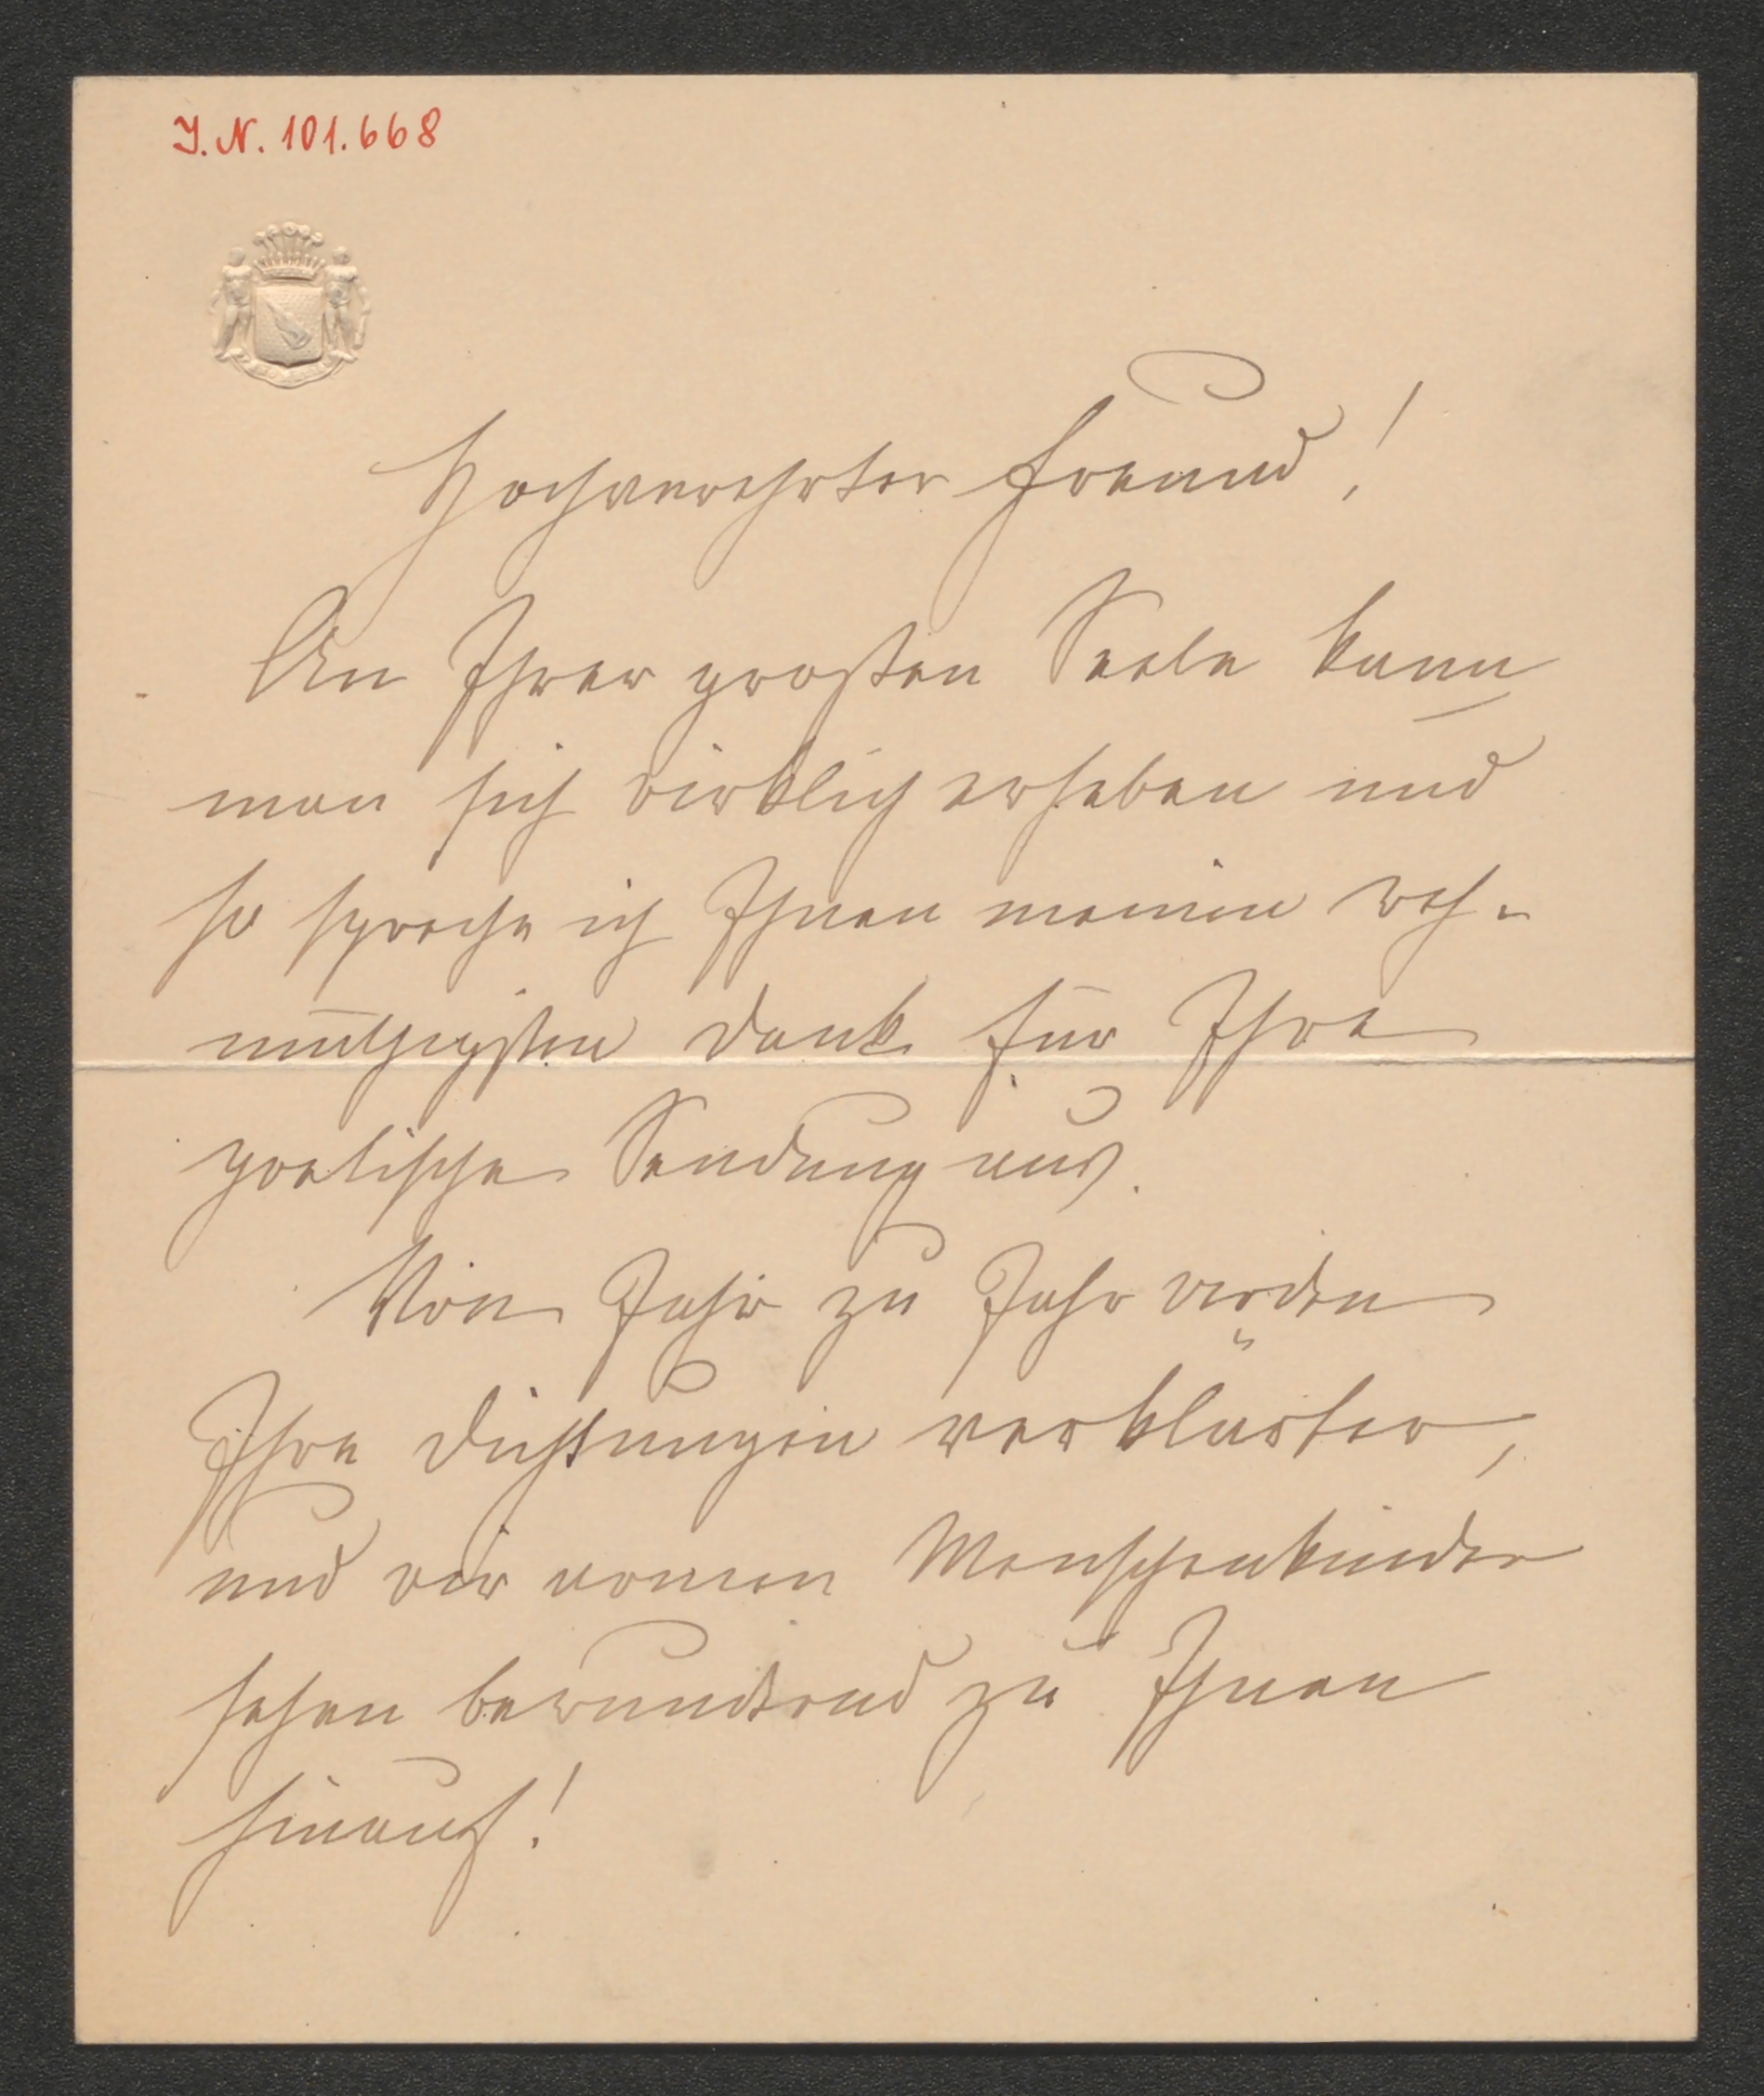 J. N. 101.668
Hochverehrter Freund!
An Ihrer großen Seele kann
man sich wirklich erheben und
so spreche ich Ihnen meinen weh-
müthigsten Dank für Ihre
poetische Sendung aus.
Von Jahr zu Jahr werden
Ihre Dichtungen verklärter,
und wir armen Menschenkinder
sehen bewundernd zu Ihnen
hinauf!